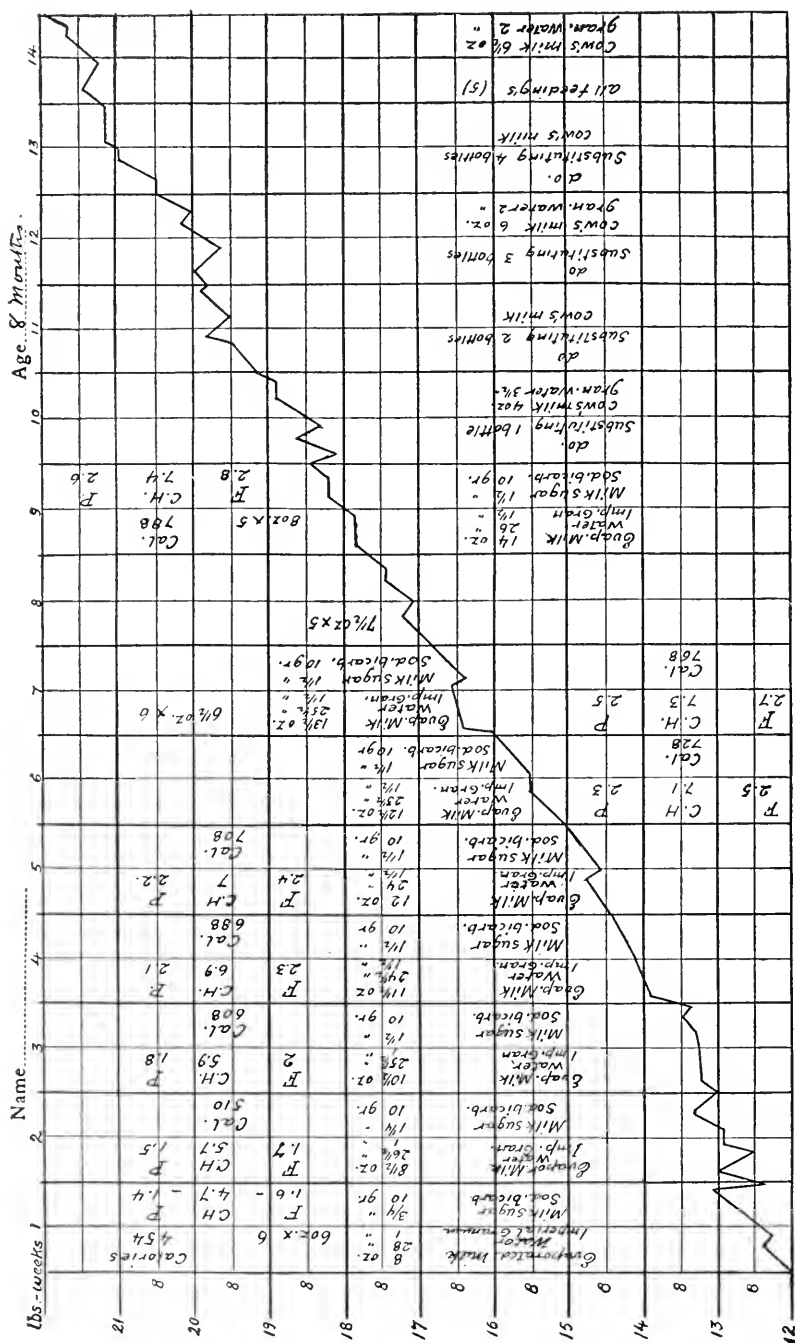 Name
Age 8 months.
lbs.-weeks 1 2 3 4 5 6 7 8 9 10 11 12 13 14
21
8
20
8
19
8
18
8
17
8
16
8
15
8
14
8
13
8
12
Evaporated milk 8 oz.
Water 28 "
Imperial Granum 1 "
Milk Sugar 3/4 "
Sod. bicarb 10 gr
6 oz x 6
Calories
454
F C.H P
1.6 - 4.7 - 1.4
Evapor. Milk 8 1/2 oz
Water 26 1/2 "
Imp. Gran. 1 "
Milk sugar 1 1/4 "
Sod. bicarb. 10 gr
F C.H P
1.7 5.7 1.5
Cal.
510
Evap. Milk 10 1/2 oz
Water 25 1/2 "
Imp. Gran 1 "
Milk sugar 1 1/2 "
Sod. bicarb. 10 gr
F C.H. P
2 5.9 1.8
Cal.
608
Evap. Milk 11 1/2 oz
Water 24 1/2 "
Imp. Gran. 1 1/2 "
Milk sugar 1 1/2 "
Sod. bicarb. 10 gr
F C.H. P
2.3 6.9 2.1
Cal.
688
Evap. Milk 12 oz.
Water 24 "
Imp. Gran 1 1/2 "
Milk sugar 1 1/2 "
Sod. bicarb. 10 gr.
F C.H P
2.4 7 2.2.
Cal.
708
Evap. Milk 12 1/2 oz.
Water 23 1/2 "
Imp. Gran. 1 1/2 "
Milk sugar 1 1/2 "
Sod. bicarb. 10 gr
F C.H P
2.5 7.1 2.3
Cal.
728
Evap. Milk 13 1/2 oz.
Water 25 1/2 "
Imp. Gran. 1 1/2 "
Milk sugar 1 1/2 "
Sod. bicarb. 10 gr.
6 1/2 oz. x 6
F C.H. P
2.7 7.3 2.5
Cal.
768
7 1/2 oz x 5
Evap. Milk 14 oz.
Water 26 "
Imp. Gran 1 1/2 "
Milk sugar 1 1/2 "
Sod. bicarb. 10 gr.
8 oz. x 5
Cal.
788
F C.H. P
2.8 7.4 2.6
do.
Substituting 1 bottle
Cow's milk 4 oz.
gran. water 3 1/2 "
do
Substituting 2 bottles
Cow's milk
do
Substituting 3 bottles
Cow's milk 6 oz.
gran. water 2 "
do.
Substituting 4 bottles
Cow's milk
all feeding's (5)
Cow's milk 6 1/2 oz
gran. water 2 "